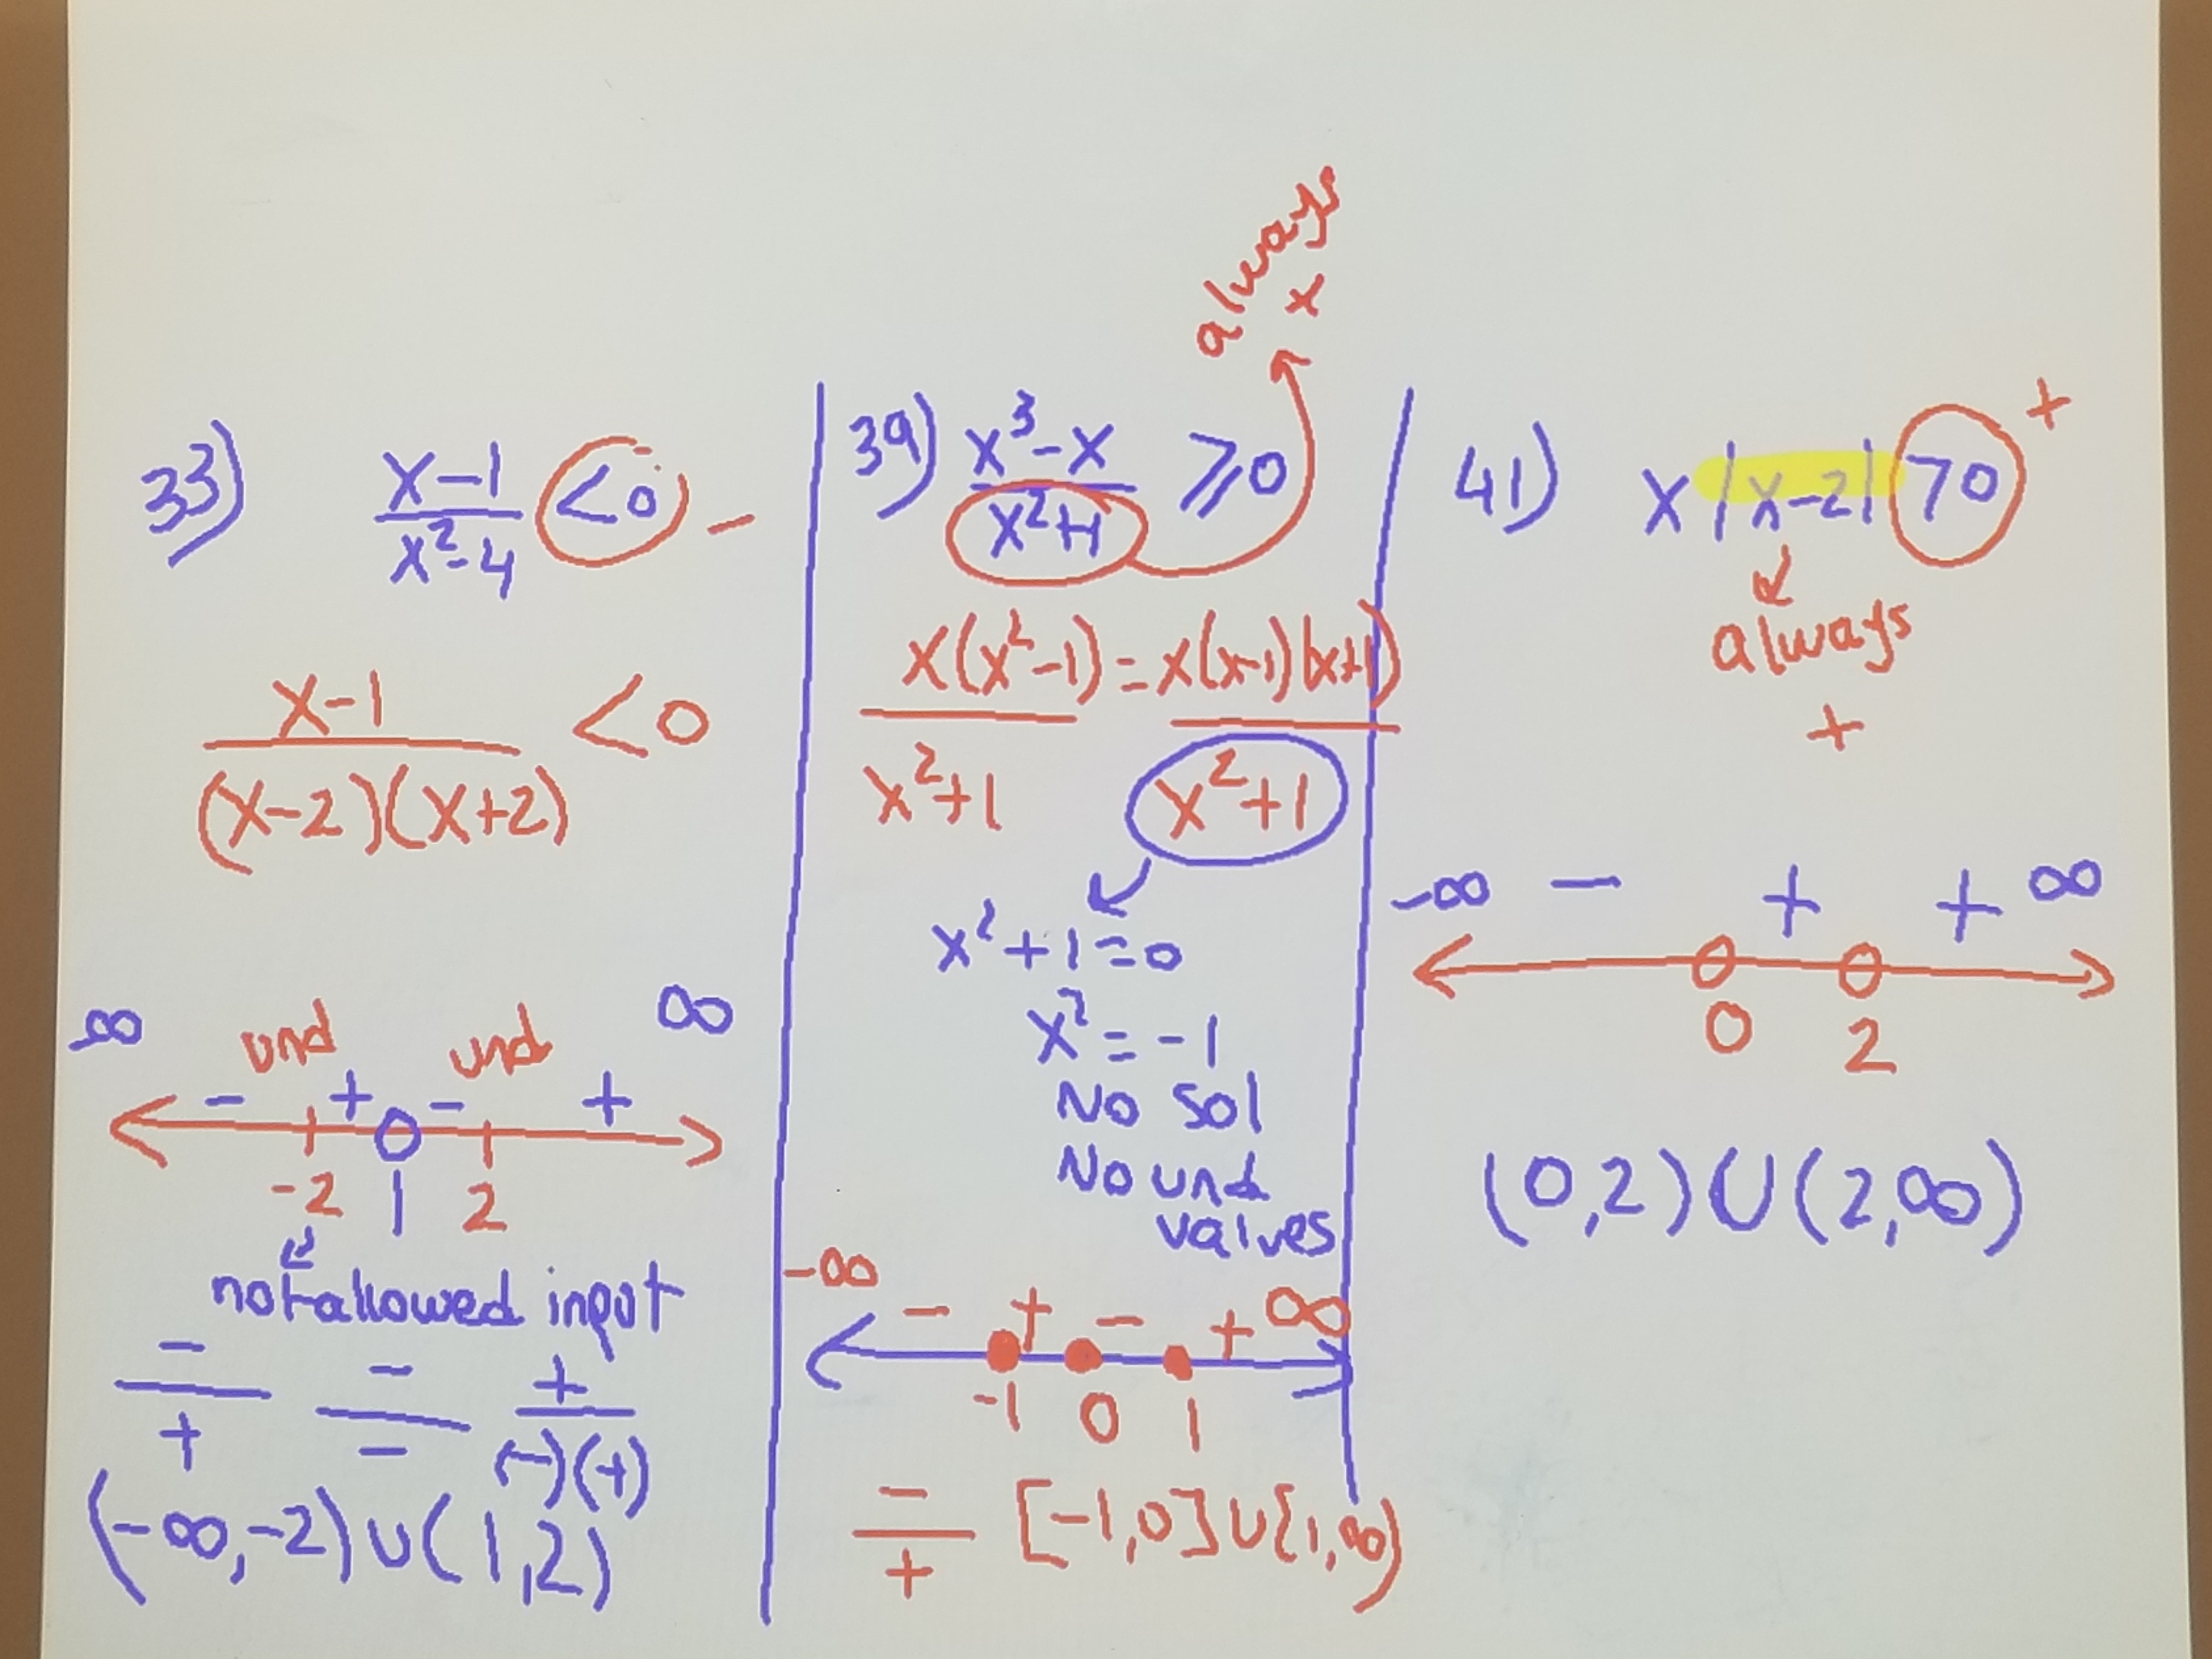 33) x-1 / x²-4 < 0 -
x-1 / (x-2)(x+2) < 0
-∞ und und ∞
- + - +
-2 1 2
not allowed input
-/+ -/- +/(-)(+)
(-∞,-2)∪(1,2)
always
x
39) x³-x / x²+1 ⩾0
x(x²-1) / x²+1 = x(x-1)(x+1) / x²+1
x²+1=0
x²=-1
No sol
No und
values
-∞ - + - + ∞
-1 0 1
-/+ [-1,0]∪[1,∞)
41) x|x-2|>0 +
always
+
-∞ - + + ∞
0 2
(0,2)∪(2,∞)